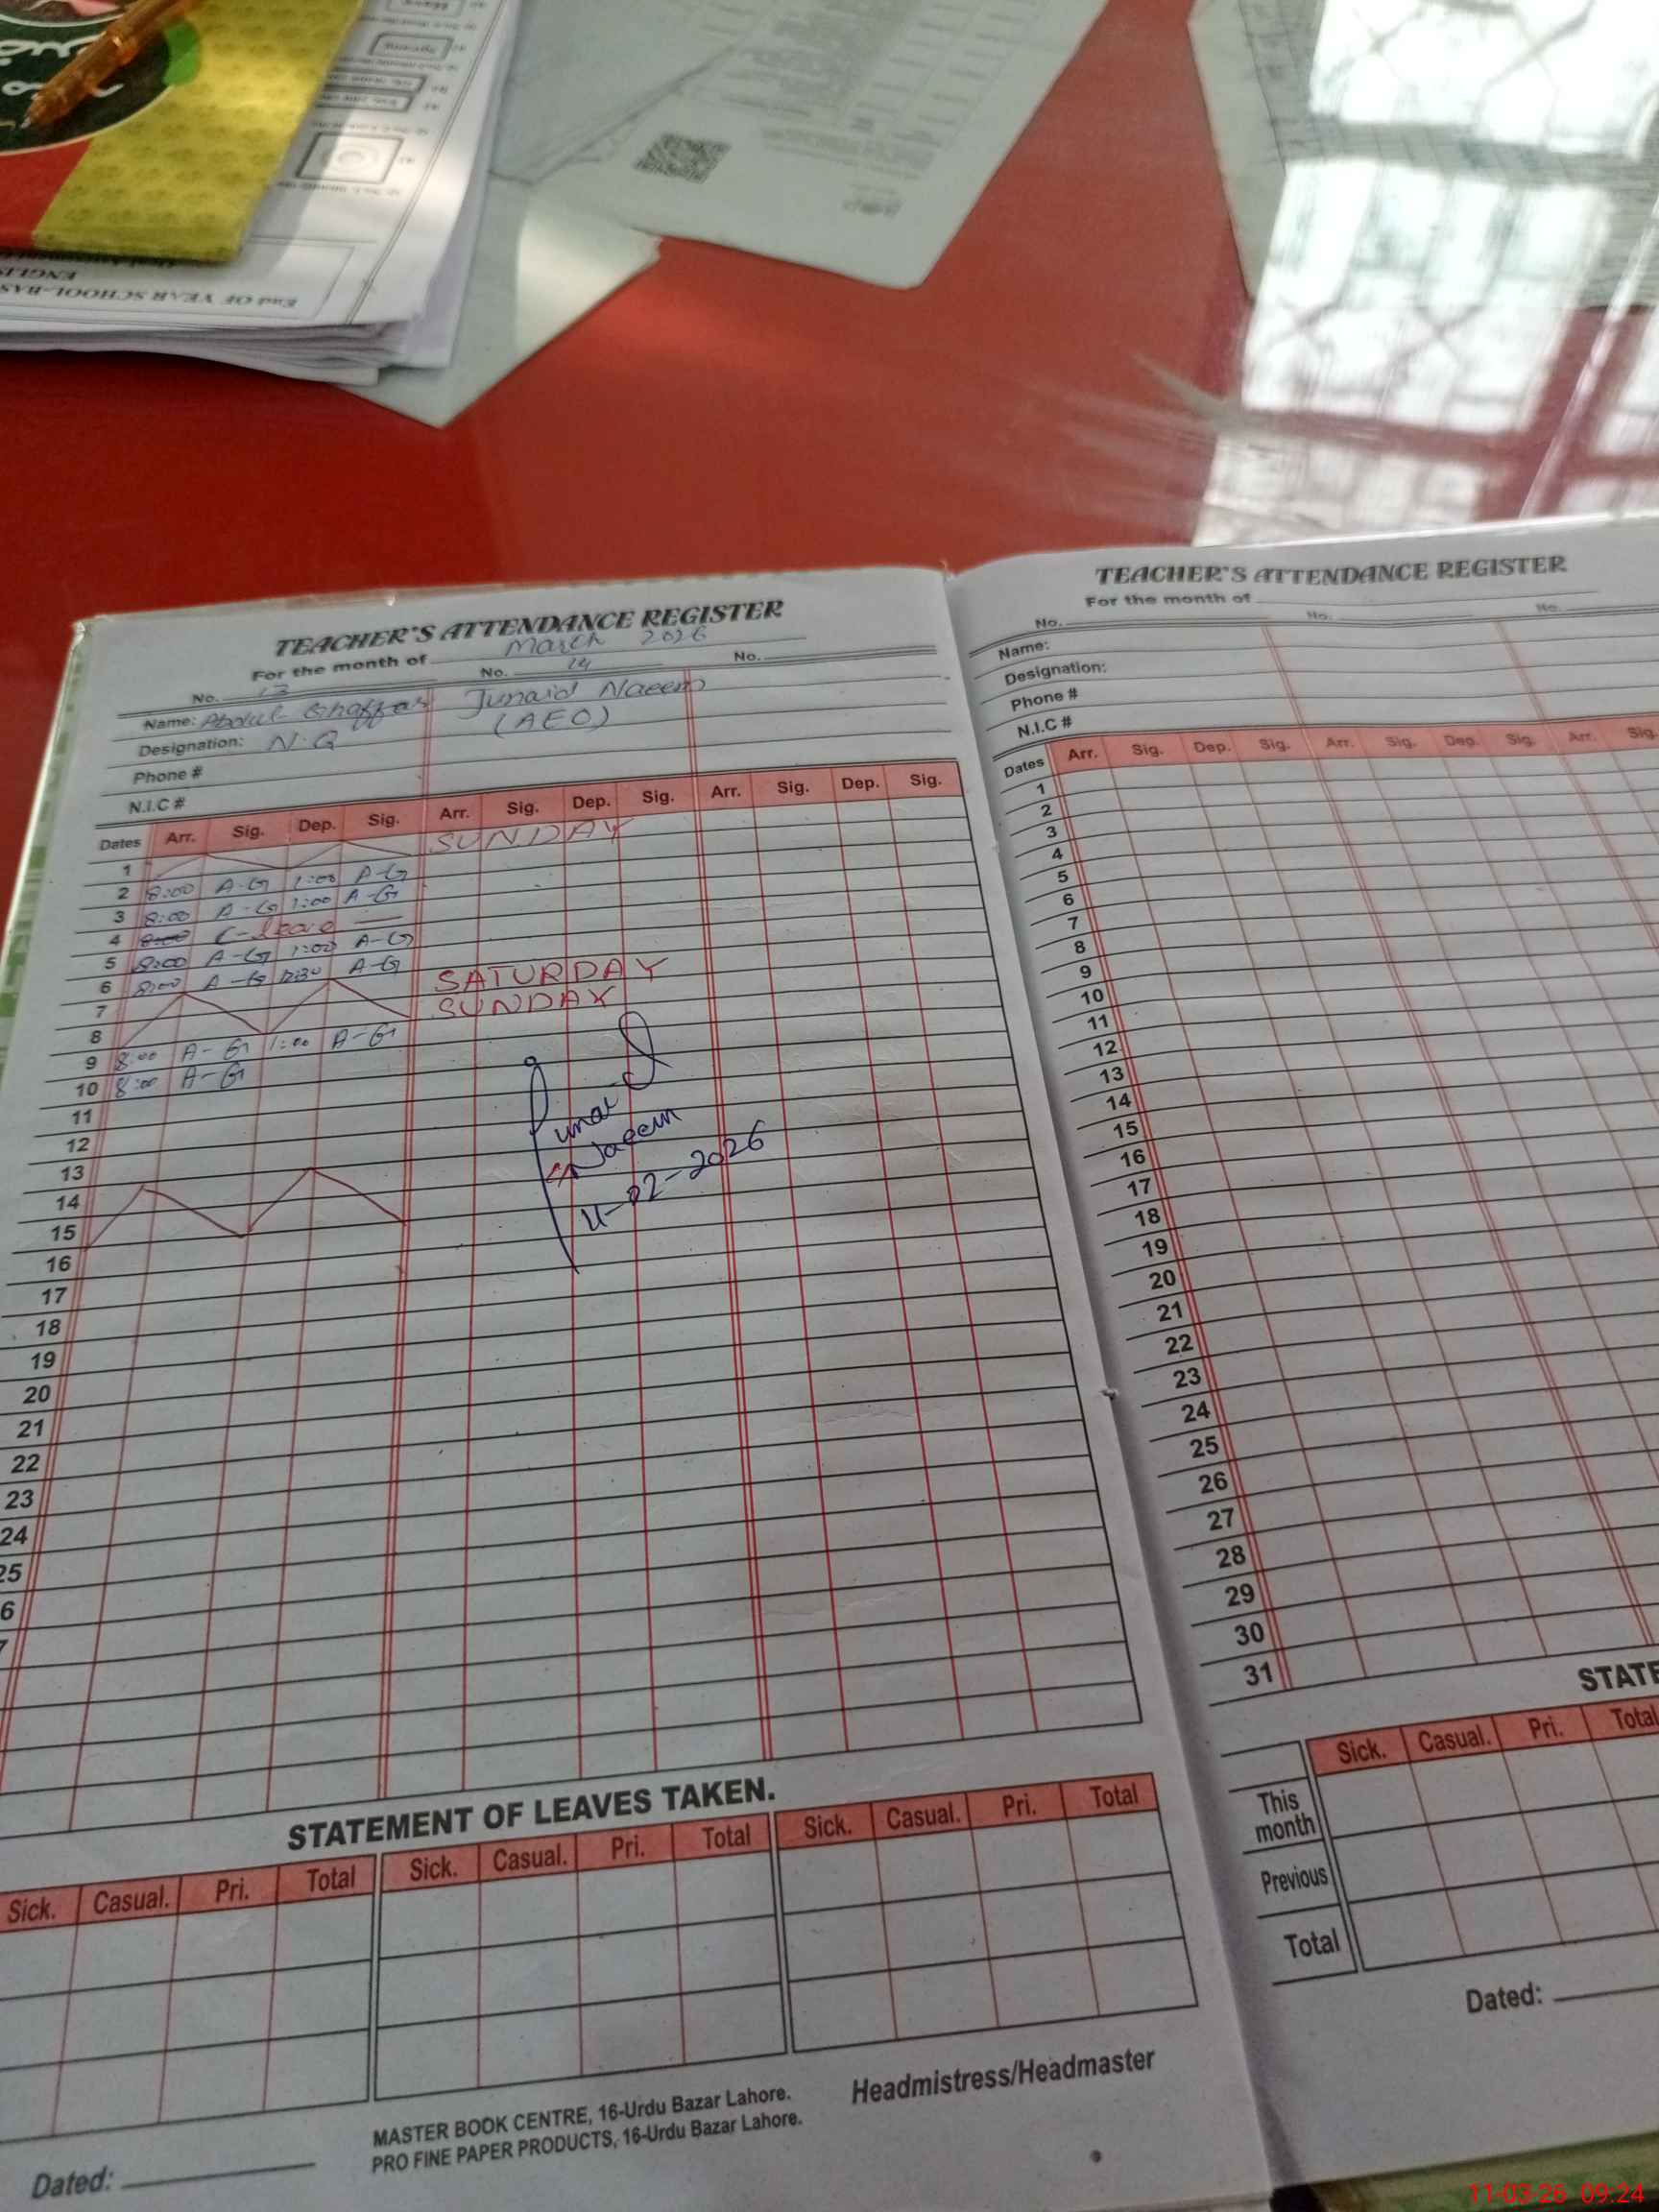 End OF YEAR SCHOOL-BAS
ENGLIS
TEACHER'S ATTENDANCE REGISTER
For the month of March 2026
No. 13 No. 14 No.
Name: Abdul Ghaffar Junaid Naeem
Designation: N.Q (AEO)
Phone #
N.I.C #
Dates Arr. Sig. Dep. Sig. Arr. Sig. Dep. Sig. Arr. Sig. Dep. Sig.
1 SUNDAY
2 8:00 A-G 1:00 A-G
3 8:00 A-G 1:00 A-G
4 8:00 C-leave
5 8:00 A-G 1:00 A-G
6 8:00 A-G 12:30 A-G
7 SATURDAY
8 SUNDAY
9 8:00 A-G 1:00 A-G
10 8:00 A-G
11
12
13
14
15
16
17
18
19
20
21
22
23
24
25
6
7
Junaid
Naeem
11-02-2026
STATEMENT OF LEAVES TAKEN.
Sick. Casual. Pri. Total Sick. Casual. Pri. Total Sick. Casual. Pri. Total
Headmistress/Headmaster
MASTER BOOK CENTRE, 16-Urdu Bazar Lahore.
PRO FINE PAPER PRODUCTS, 16-Urdu Bazar Lahore.
Dated:
TEACHER'S ATTENDANCE REGISTER
For the month of
No. No. No.
Name:
Designation:
Phone #
N.I.C #
Dates Arr. Sig. Dep. Sig. Arr. Sig. Dep. Sig. Arr. Sig.
1
2
3
4
5
6
7
8
9
10
11
12
13
14
15
16
17
18
19
20
21
22
23
24
25
26
27
28
29
30
31
STATE
Sick. Casual. Pri. Total
This month
Previous
Total
Dated:
11-03-26 09:24